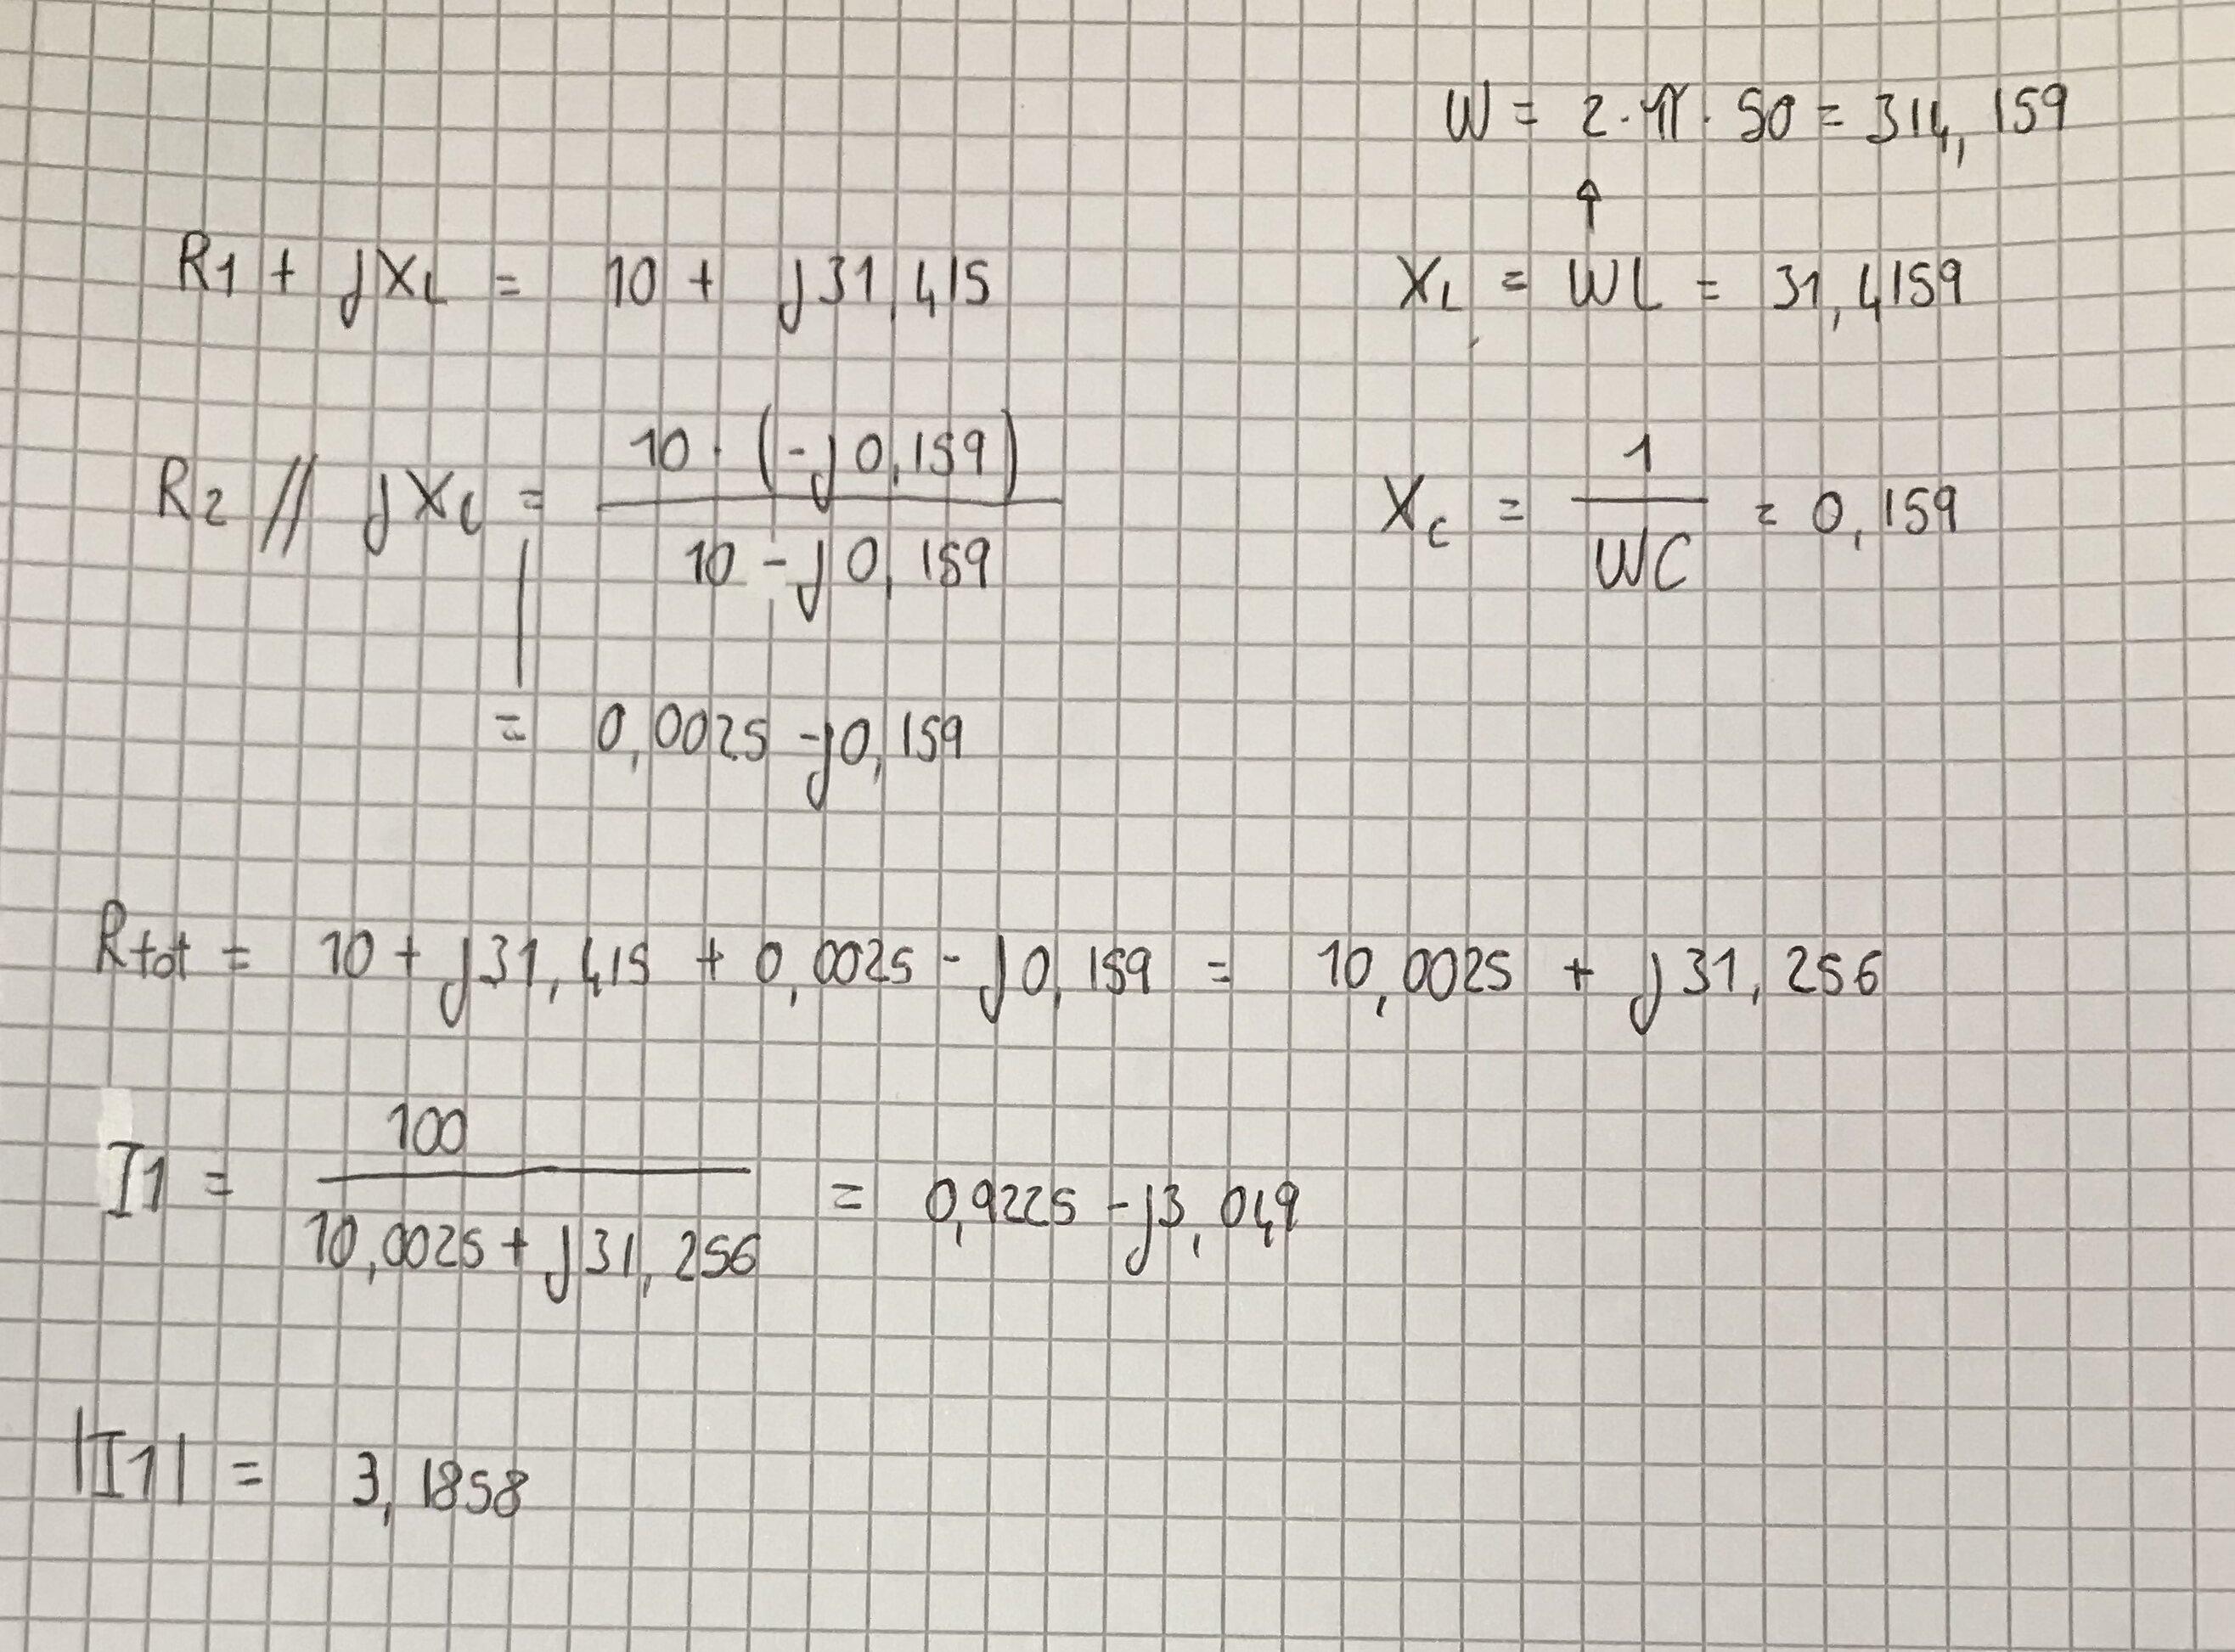 W = 2·π·50 = 314,159
R1 + jXL = 10 + j31,415
XL = WL = 31,4159
R2 // jXC = 10·(-j0,159) / 10 - j0,159
XC = 1 / WC = 0,159
= 0,0025 - j0,159
Rtot = 10 + j31,415 + 0,0025 - j0,159 = 10,0025 + j31,256
I1 = 100 / 10,0025 + j31,256 = 0,9225 - j3,049
|I1| = 3,1858